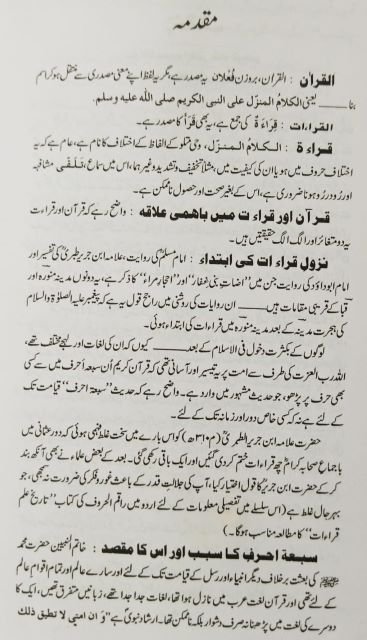 مقدمہ
القرآن : القرآن، بروزن فُعلان یہ مصدر ہے، مگر یہ لفظ اپنے معنی مصدری سے منتقل ہو کر اسم
بنا ـــــ یعنی الکلامُ المنزل علی النبی الکریم صلی اللہ علیہ وسلم.
القراءات : قِرَاءَۃ کی جمع ہے، یہ بھی قَرَأَ کا مصدر ہے۔
قراءۃ : الکلام المنزل، وحی متلو کے الفاظ کے اختلاف کا نام ہے، عام ہے کہ یہ
اختلاف حروف میں ہو یا ان کی کیفیت میں، مثلاً تخفیف و تشدید وغیرہما، اس میں سماع، تلقی مشافہہ
اور رُو در رُو ہونا ضروری ہے، اس کے بغیر صحت اور حصول ناممکن ہے۔
قرآن اور قراءت میں باہمی علاقہ : واضح رہے کہ قرآن اور قراءت
یہ دو متغائر اور الگ الگ حقیقتیں ہیں۔
نزولِ قراءات کی ابتداء : امام مسلمؒ کی روایت، علامہ ابن جریر طبریؒ کی تفسیر اور
امام ابوداؤد کی روایت جن میں ”اضاۃ بنی غفار“ اور ”احجار مراء“ کا ذکر ہے، یہ دونوں مدینہ منورہ اور
قبا کے قریبی مقامات ہیں ـــــ ان روایات کی روشنی میں راجح قول یہ ہے کہ پیغمبر علیہ الصلوٰۃ والسلام
کی ہجرت مدینہ کے بعد مدینہ منورہ میں قراءات کی ابتداء ہوئی۔
لوگوں کے بکثرت دخول فی الاسلام کے بعد ـــــ کیوں کہ ان کی لغات اور لہجے مختلف تھے،
اللہ رب العزت کی طرف سے امت پر یہ تیسیر اور آسانی تھی کہ قرآن کریم اُن سبعۃ احرف میں سے جس
حرف پر پڑھو، جو حدیث مشہور میں وارد ہے۔ واضح رہے کہ حدیث ”سبعۃ احرف“ قیامت تک
کے لئے ہے نہ کہ کسی خاص دور اور زمانہ تک کے لئے۔
حضرت علامہ ابن جریر الطبریؒ (م۳۱۰ھ) کو اس بارے میں سخت غلط فہمی ہوئی کہ دور عثمانی میں
باجماع صحابہ کرامؓ چھ قراءات ختم کر دی گئیں اور ایک باقی رکھی گئی۔ بعد کے بعض علماء نے بھی آنکھ بند
کر کے حضرت ابن جریرؒ کا قول اختیار کیا، آپ کی جلالت قدر کے باعث غور و فکر کی ضرورت نہ سمجھی، جو
بہر حال غلط ہے (اس سلسلے میں تفصیلی معلومات کے لئے اردو میں راقم الحروف کی کتاب ”تاریخ علم
قراءات“ کا مطالعہ مناسب ہوگا)۔
سبعۃ احرف کا سبب اور اس کا مقصد : خاتم النبیین حضرت محمد
ﷺ کی بعثت برخلاف دیگر انبیاء ورسل کے قیامت تک کے لئے اور سارے عالم اور تمام اقوام عالم
کے لئے تھی اور قرآن لغت عرب میں نازل ہوا تھا، لغات جدا جدا تھے، زبانیں متفرق تھیں، ایک کا
دوسرے کی لغت میں پڑھنا نہ صرف دشوار بلکہ ناممکن تھا۔ ارشاد نبوی ہے ”وَ ان امتی لا تطیق ذلک